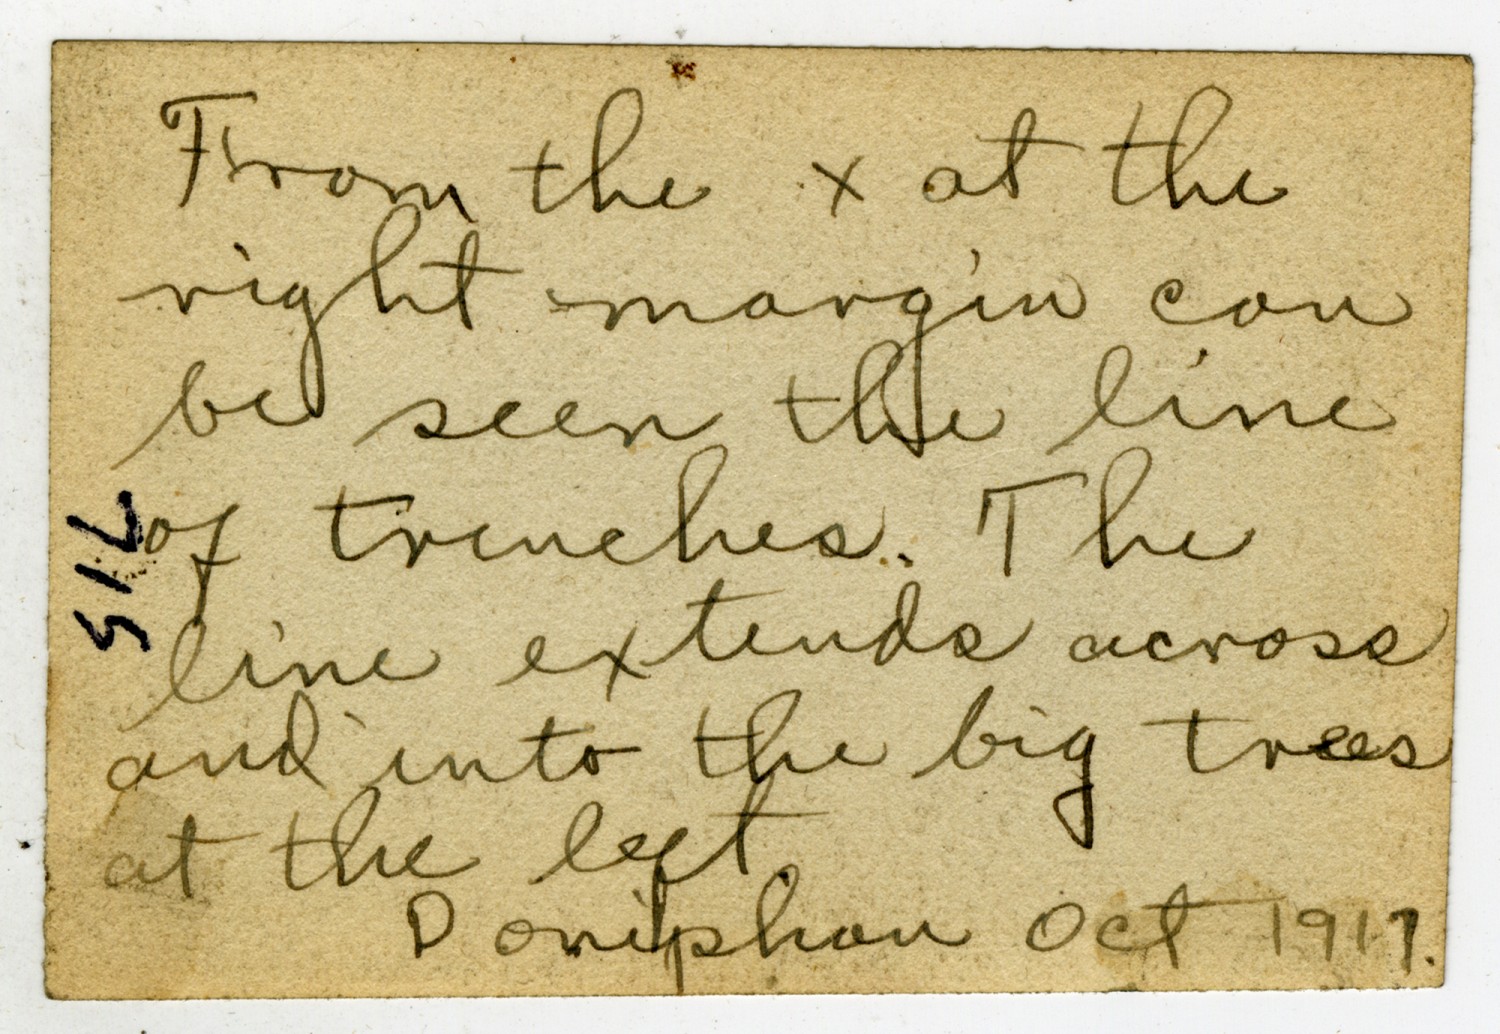 From the x at the
right margin can
be seen the line
of trenches. The
line extends across
and into the big trees
at the left.
Doniphan Oct 1917.
715